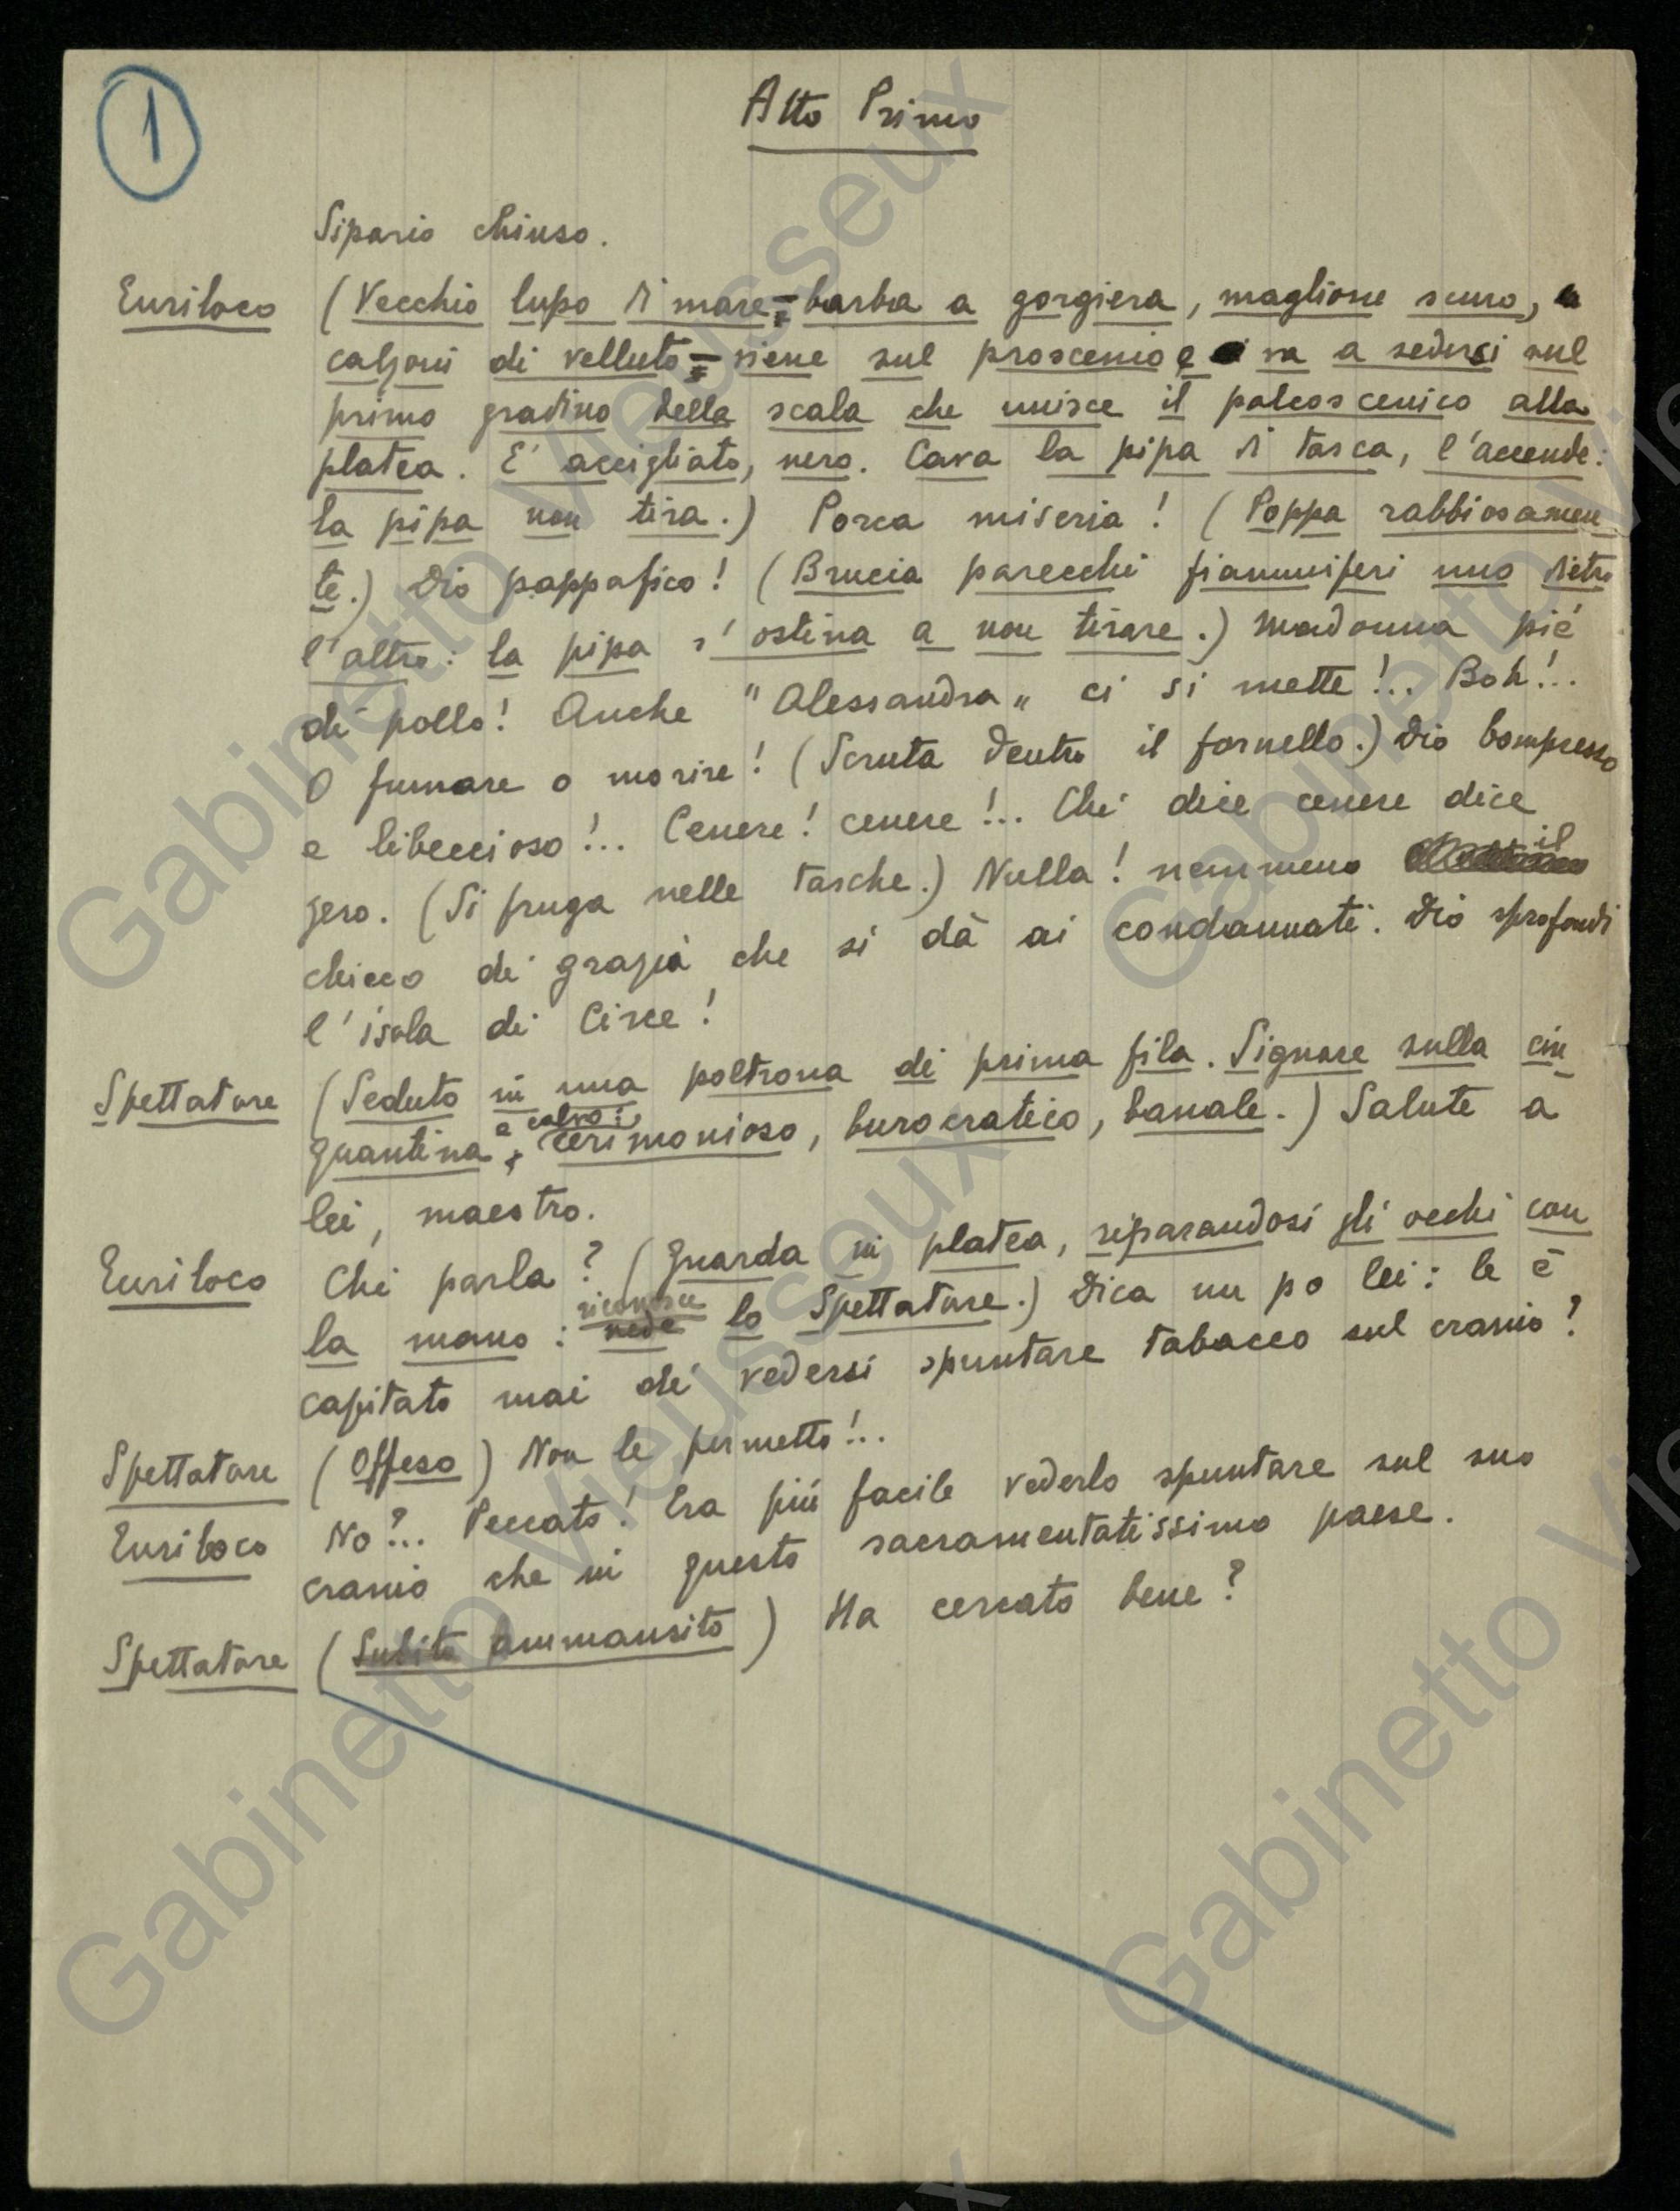 1
Atto Primo
Sipario chiuso.
Euriloco (Vecchio lupo di mare = barba a gorgiera, maglione scuro,
calzoni di velluto = viene sul proscenio e va a sedersi sul
primo gradino della scala che unisce il palcoscenico alla
platea. E' accigliato, nero. Cava la pipa di tasca, l'accende:
la pipa non tira.) Porca miseria! (Poppa rabbiosamen
te.) Dio pappafico! (Brucia parecchi fiammiferi uno dietro
l'altro: la pipa s'ostina a non tirare.) Madonna pié
di pollo! Anche "Alessandra" ci si mette!.. Boh!..
O fumare o morire! (Scruta dentro il fornello.) Dio bompresso
e libeccioso!.. Cenere! cenere!.. Chi dice cenere dice
zero. (Si fruga nelle tasche.) Nulla! nemmeno il
chicco di grazia che si dà ai condannati. Dio sprofondi
l'isola di Circe!
Spettatore (Seduto in una poltrona di prima fila. Signore sulla cin-
quantina e calvo: cerimonioso, burocratico, banale.) Salute a
lei, maestro.
Euriloco Chi parla? (Guarda in platea, riparandosi gli occhi con
la mano: riconosce vede lo Spettatore.) Dica un po lei: le è
capitato mai di vedersi spuntare tabacco sul cranio?
Spettatore (Offeso) Non le permetto!..
Euriloco No?.. Peccato! Era più facile vederlo spuntare sul suo
cranio che in questo sacramentatissimo paese.
Spettatore (Subito ammansito) Ha cercato bene?
Gabinetto Vieusseux
Gabinetto Vieusseux
Gabinetto Vieusseux
Gabinetto Vieusseux